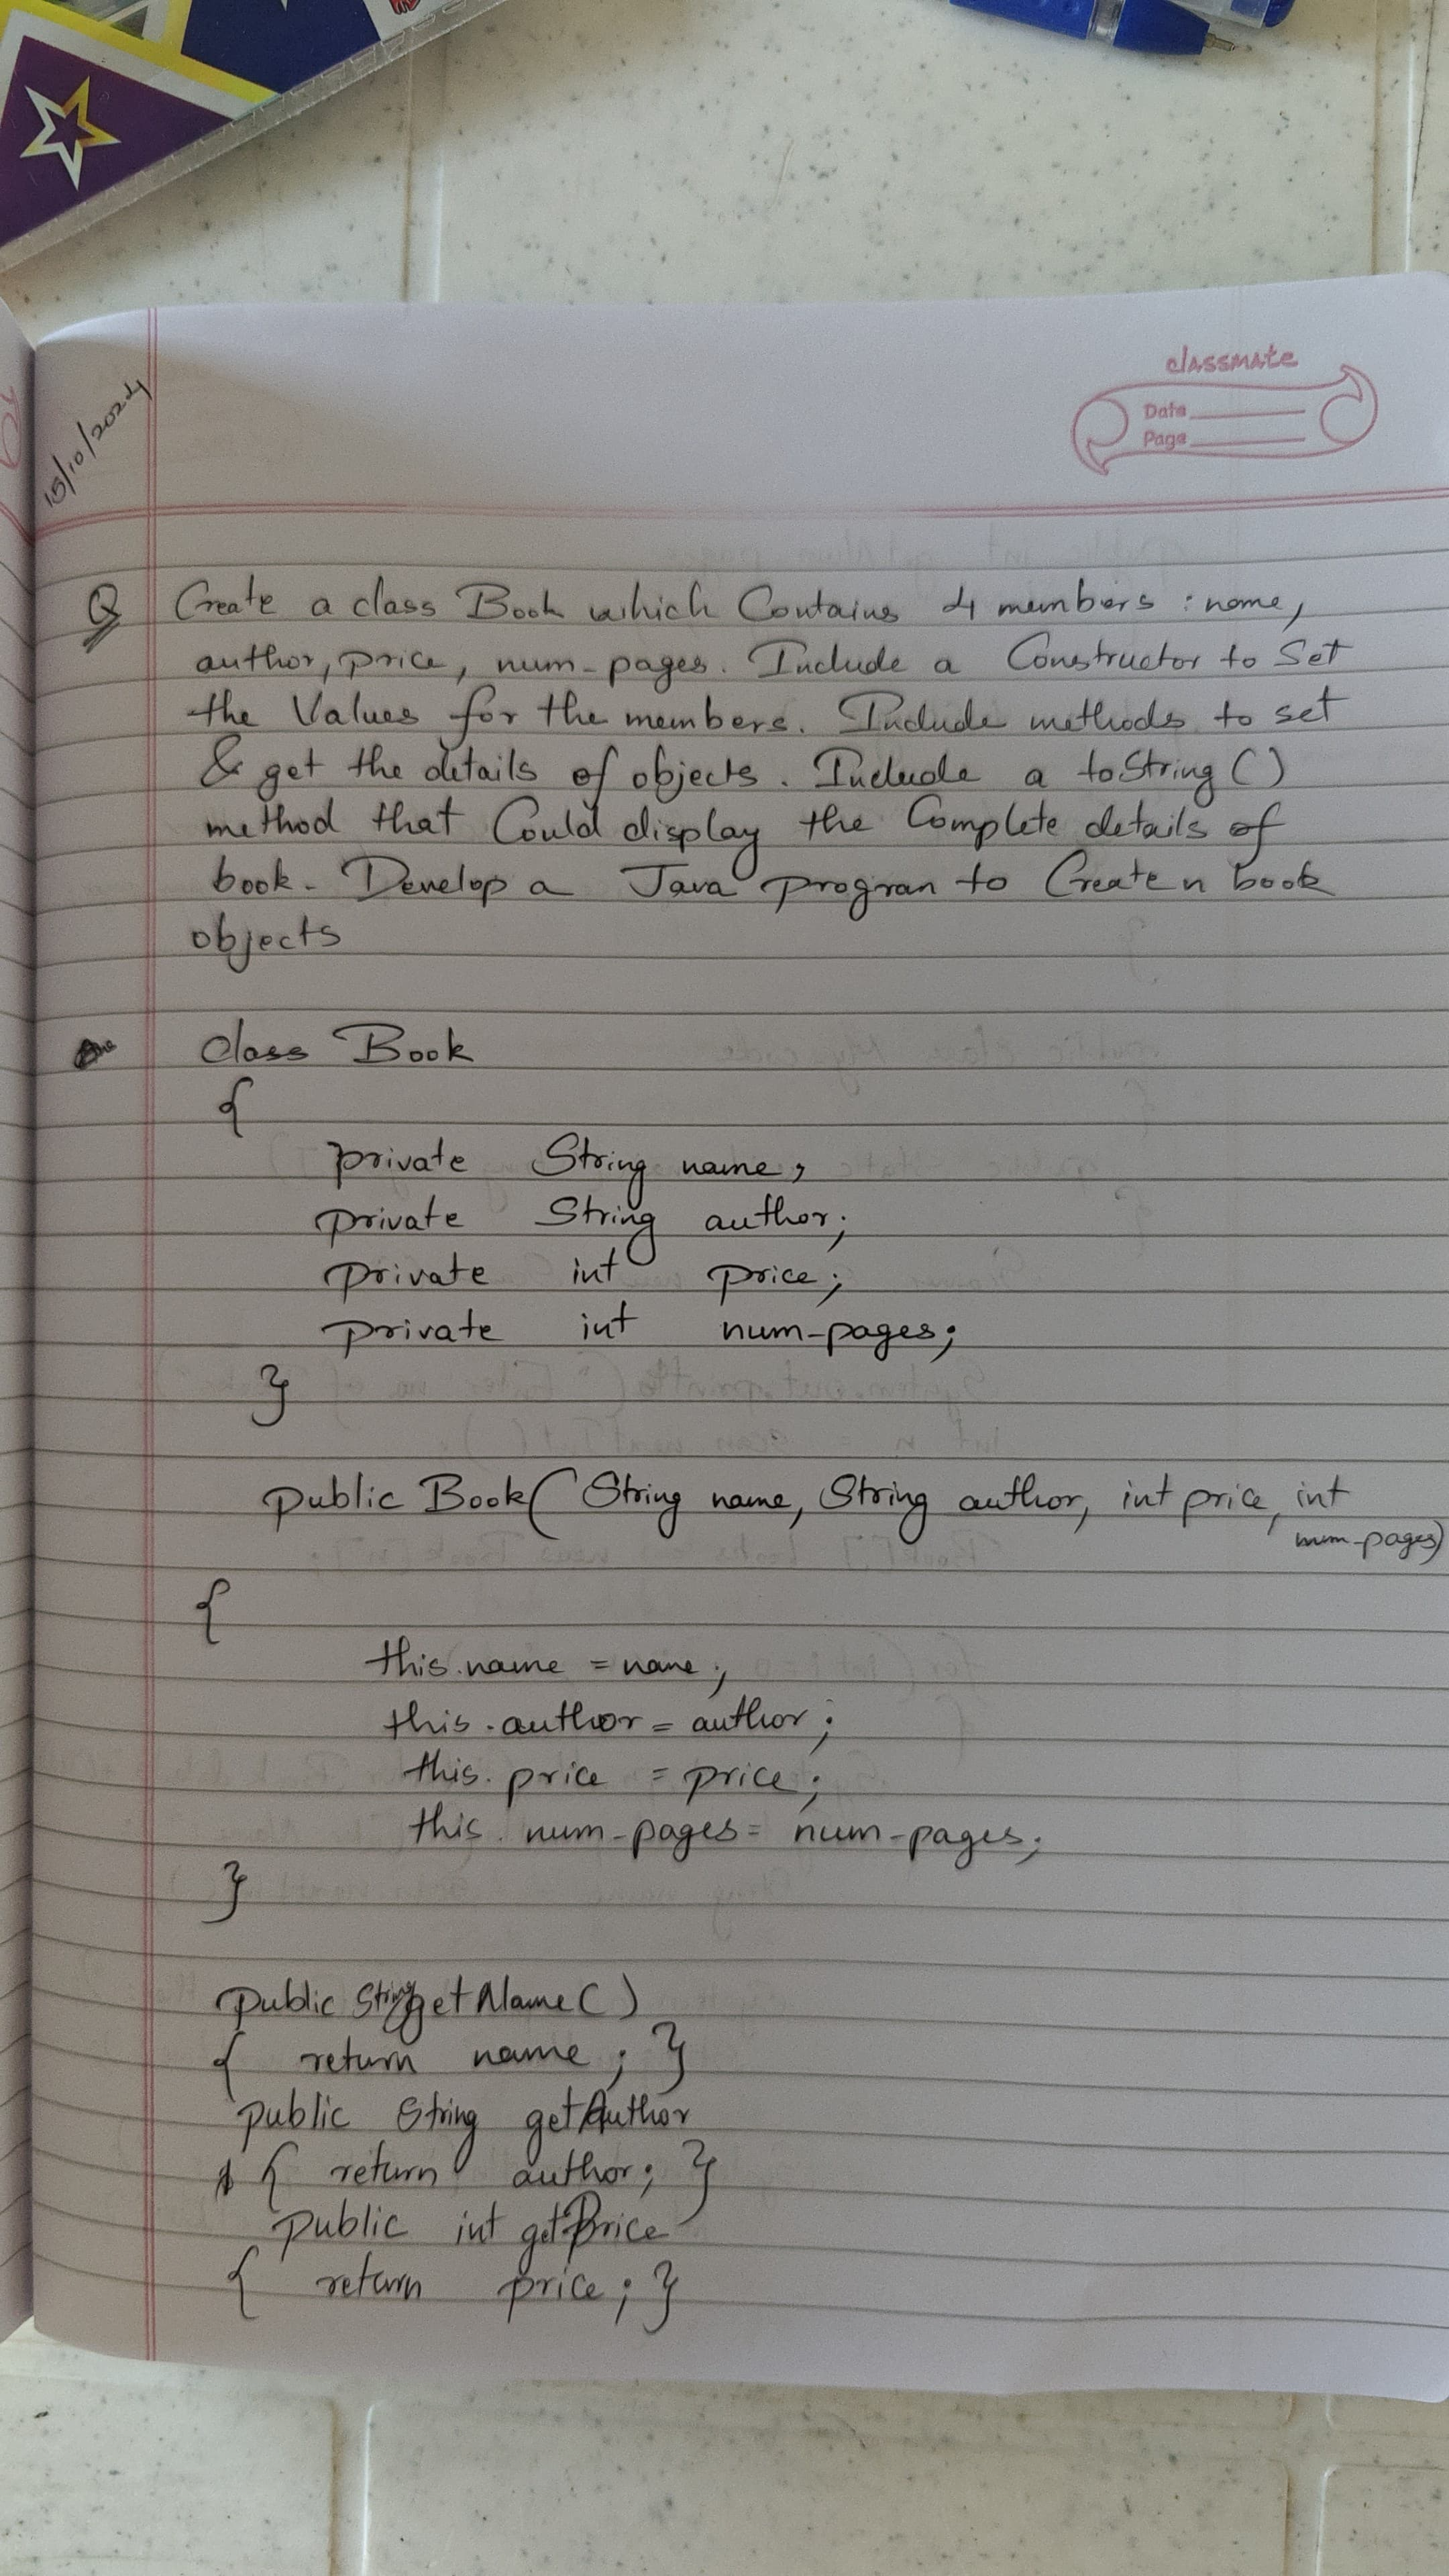 classmate
Date
Page
15/10/2024
Q Create a class Book which Contains 4 members : name,
author, price, num-pages. Include a Constructor to Set
the Values for the members. Include methods to set
& get the details of objects. Include a toString ()
method that Could display the Complete details of
book. Develop a Java program to Create n book
objects
class Book
{
private String name;
private String author;
private int price;
private int num-pages;
}
public Book( String name, String author, int price, int
num-pages)
{
this.name = name;
this.author = author;
this.price = price;
this.num-pages = num-pages;
}
public String getName()
{ return name; }
public String getAuthor
{ return author; }
public int getPrice
{ return price; }